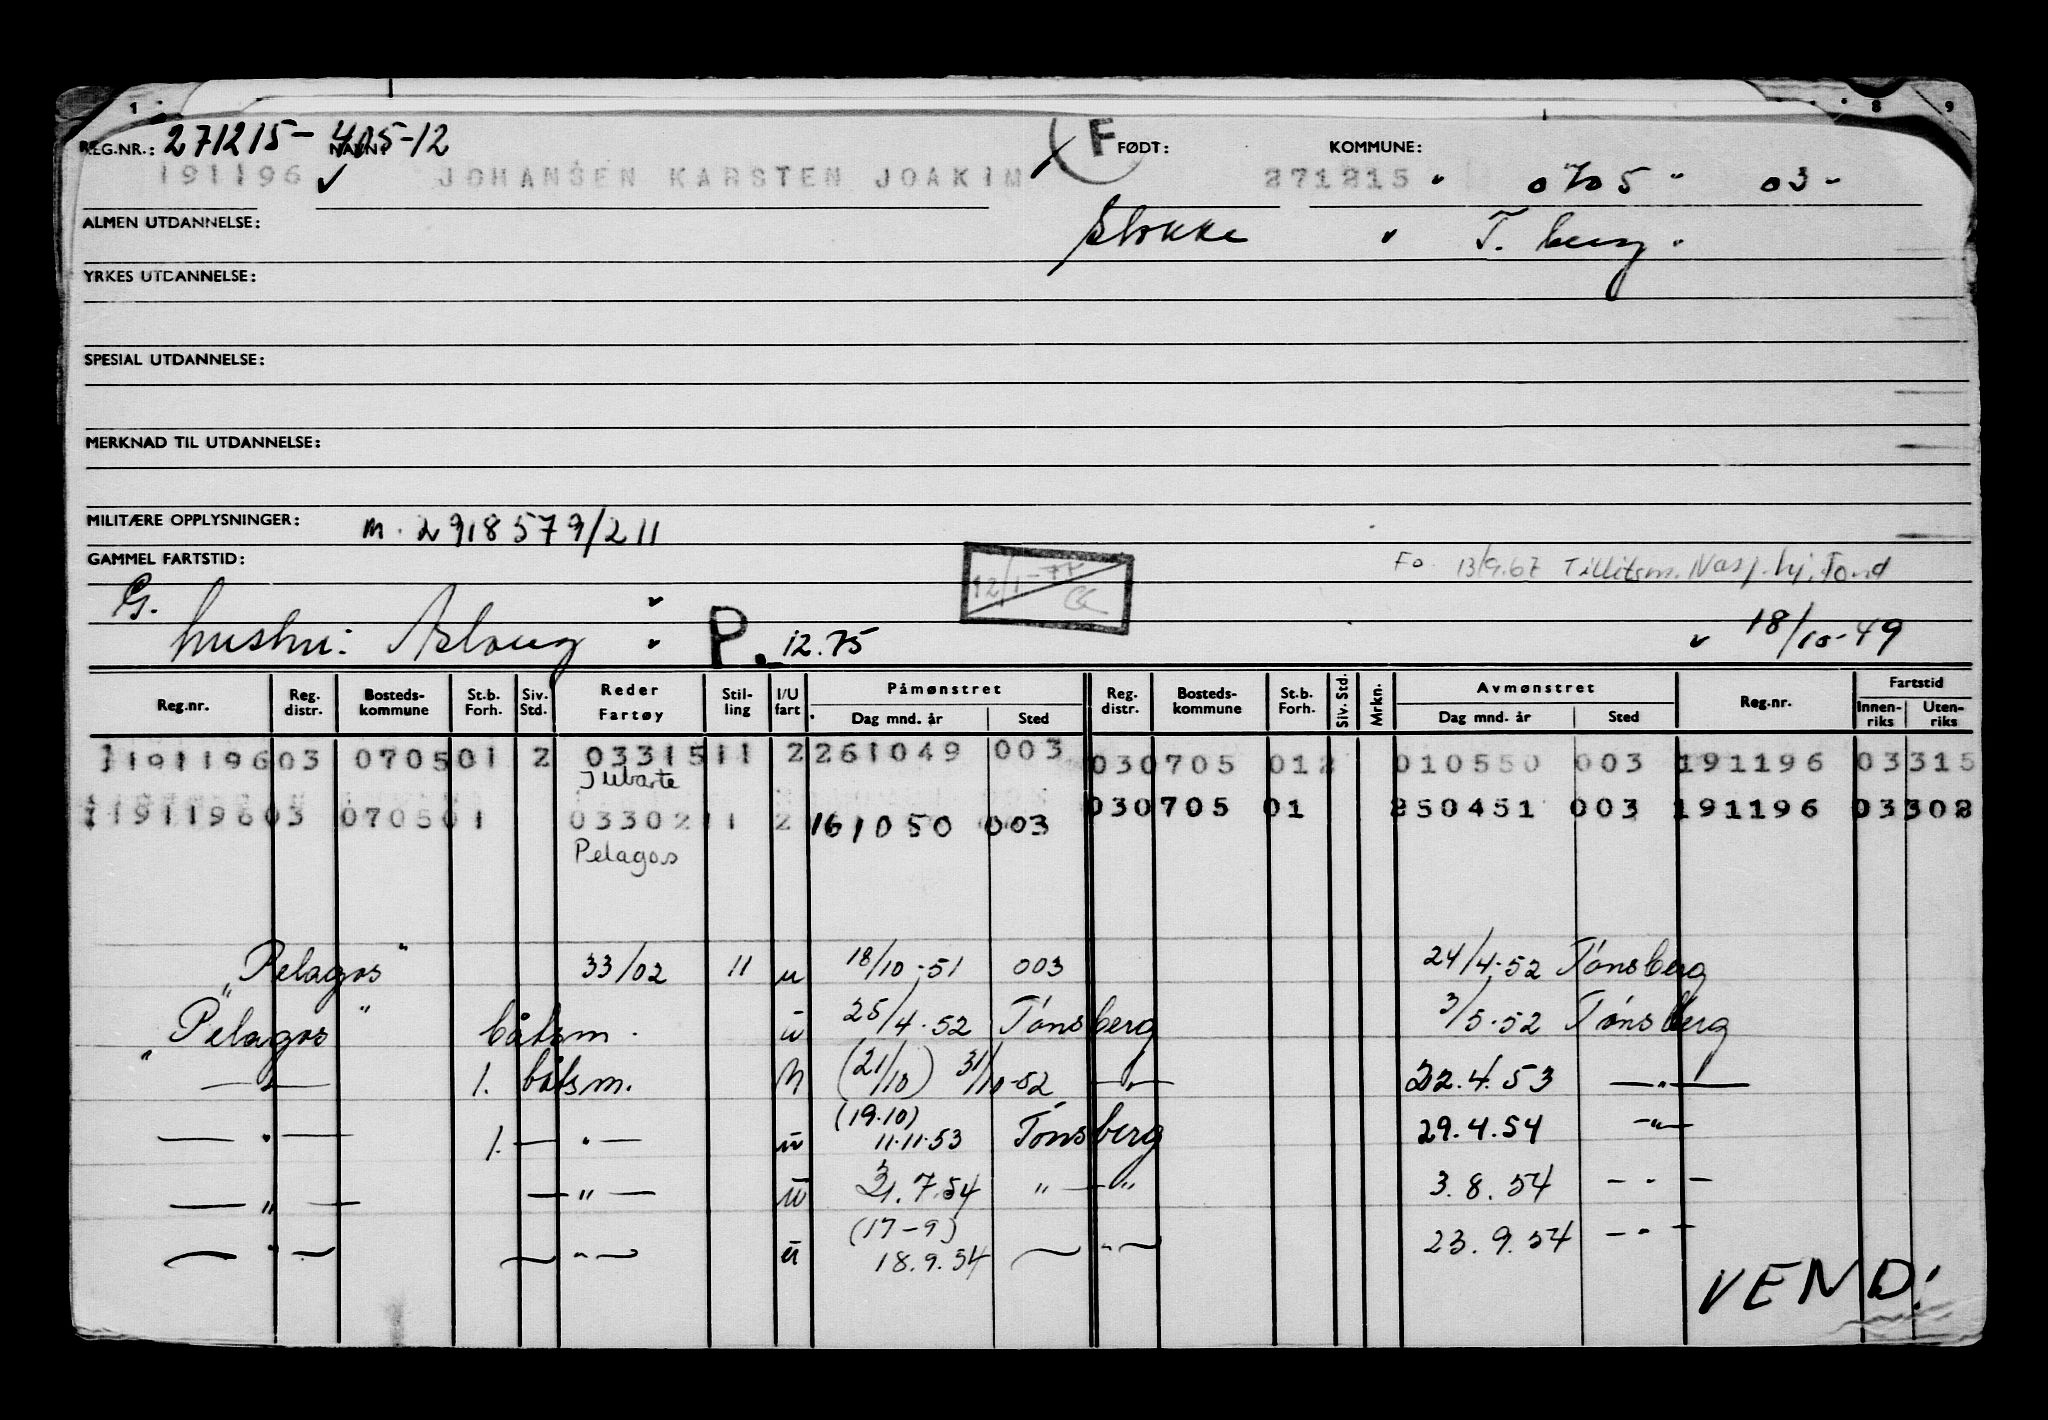 1 8 9
REG.NR.: 271215- 405-12 NAVN: F FØDT: KOMMUNE:
191196 ✓ JOHANSEN KARSTEN JOAKIM 271215 0705 03
ALMEN UTDANNELSE: Stokke T. berg.
YRKES UTDANNELSE:
SPESIAL UTDANNELSE:
MERKNAD TIL UTDANNELSE:
MILITÆRE OPPLYSNINGER: m. 2918579/211
GAMMEL FARTSTID: Fo 13/9.67 Tillitsm.
G. 12/1-77
hustru: Aslaug P. 12.75 18/10-49
Reg.nr. Reg. distr. Bosteds-kommune St.b. Forh. Siv. Std. Reder Fartøy Stil-ling I/U fart Påmønstret Dag mnd. år Sted Reg. distr. Bosteds-kommune St.b. Forh. Siv. Std. Mrkn. Avmønstret Dag mnd. år Sted Reg.nr. Fartstid Innen-riks Uten-riks
1 191196 03 0705 01 2 03315 11 2 261049 003 03 0705 01 2 010550 003 191196 03315
Jubarte
1 191196 03 0705 01 03302 11 2 161050 003 03 0705 01 250451 003 191196 03302
Pelagos
"Pelagos" 33/02 11 u 18/10-51 003 24/4-52 Tønsberg
"Pelagos" båtsm. u 25/4-52 Tønsberg 3/5-52 Tønsberg
—"— 1. båtsm. u (21/10) 31/10-52 —"— 22.4.53 —"—
—"— 1. —"— u (19.10) 11.11.53 Tønsberg 29.4.54 —"—
—"— —"— u 31.7.54 "—" 3.8.54 —"—
—"— —"— u (17-9) 18.9.54 —"— 23.9.54 —"—
VEND!